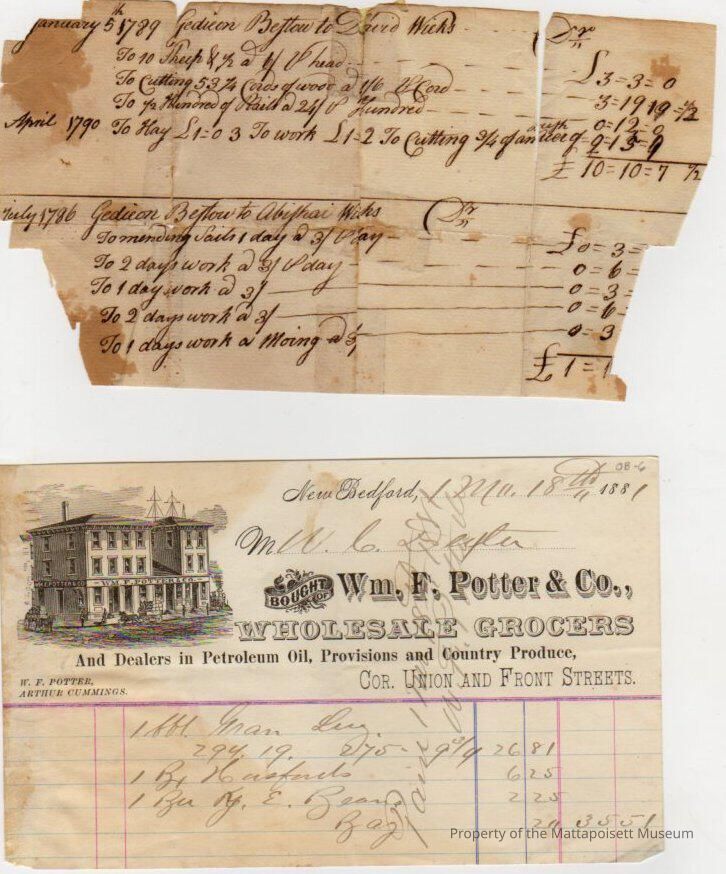 January 5th 1789 Gedieon Bestow to David Wicks Dr
To 10 Sheep & ½ a 6/ P head
To Cutting 53¾ Cords of wood a 1/6 P Cord
To ½ Hundred of Rails a 24/ P Hundred
April 1790 To Hay £1=0 3 To work £1=2 To Cutting ¾ of an
£3=3=0
3=19 19=½
0=12=0
2=15=9
£10=10=7 ½
July 1786 Gedieon Bestow to Abishai Wicks Dr
To mending Sails 1 day a 3/ P Day £0=3=
To 2 days work a 3/ P day 0=6=
To 1 day work a 3/ 0=3=
To 2 days work a 3/ 0=6=
To 1 days work a Moing a 3/ 0=3
£1=1
OB-6
New Bedford, 1 Mo. 18th 1881
M W. C. Dexter
BOUGHT OF Wm. F. Potter & Co.,
WHOLESALE GROCERS
And Dealers in Petroleum Oil, Provisions and Country Produce,
Cor. Union and Front Streets.
WM. F. POTTER & CO.
W. F. POTTER,
ARTHUR CUMMINGS.
1 bbl. Gran
294. 19. 275 - 9¾ 26 81
1 Bx 6 25
1 E. Bean 2 25
Bag 20 35 51
Property of the Mattapoisett Museum